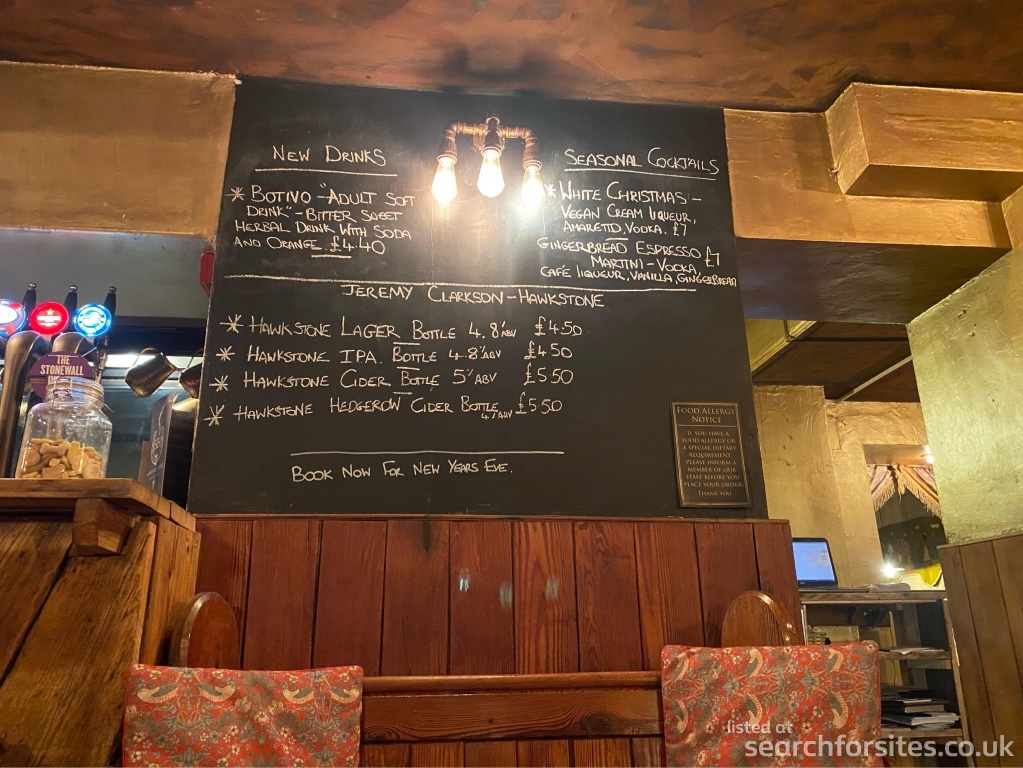 NEW DRINKS
* BOTIVO - "ADULT SOFT
DRINK" - BITTER SWEET
HERBAL DRINK WITH SODA
AND ORANGE. £4.40
SEASONAL COCKTAILS
* WHITE CHRISTMAS -
VEGAN CREAM LIQUEUR,
AMARETTO, VODKA. £7
GINGERBREAD ESPRESSO £7
MARTINI - VODKA,
CAFÉ LIQUEUR, VANILLA, GINGERBREAD
JEREMY CLARKSON - HAWKSTONE
* HAWKSTONE LAGER BOTTLE 4.8% ABV £4.50
* HAWKSTONE IPA. BOTTLE 4.8% ABV £4.50
* HAWKSTONE CIDER BOTTLE 5% ABV £5.50
* HAWKSTONE HEDGEROW CIDER BOTTLE 4% ABV £5.50
BOOK NOW FOR NEW YEARS EVE.
FOOD ALLERGY
NOTICE
IF YOU HAVE A
FOOD ALLERGY OR
A SPECIAL DIETARY
REQUIREMENT
PLEASE INFORM A
MEMBER OF OUR
STAFF BEFORE YOU
PLACE YOUR ORDER.
THANK YOU
THE
STONEWALL
listed at
searchforsites.co.uk